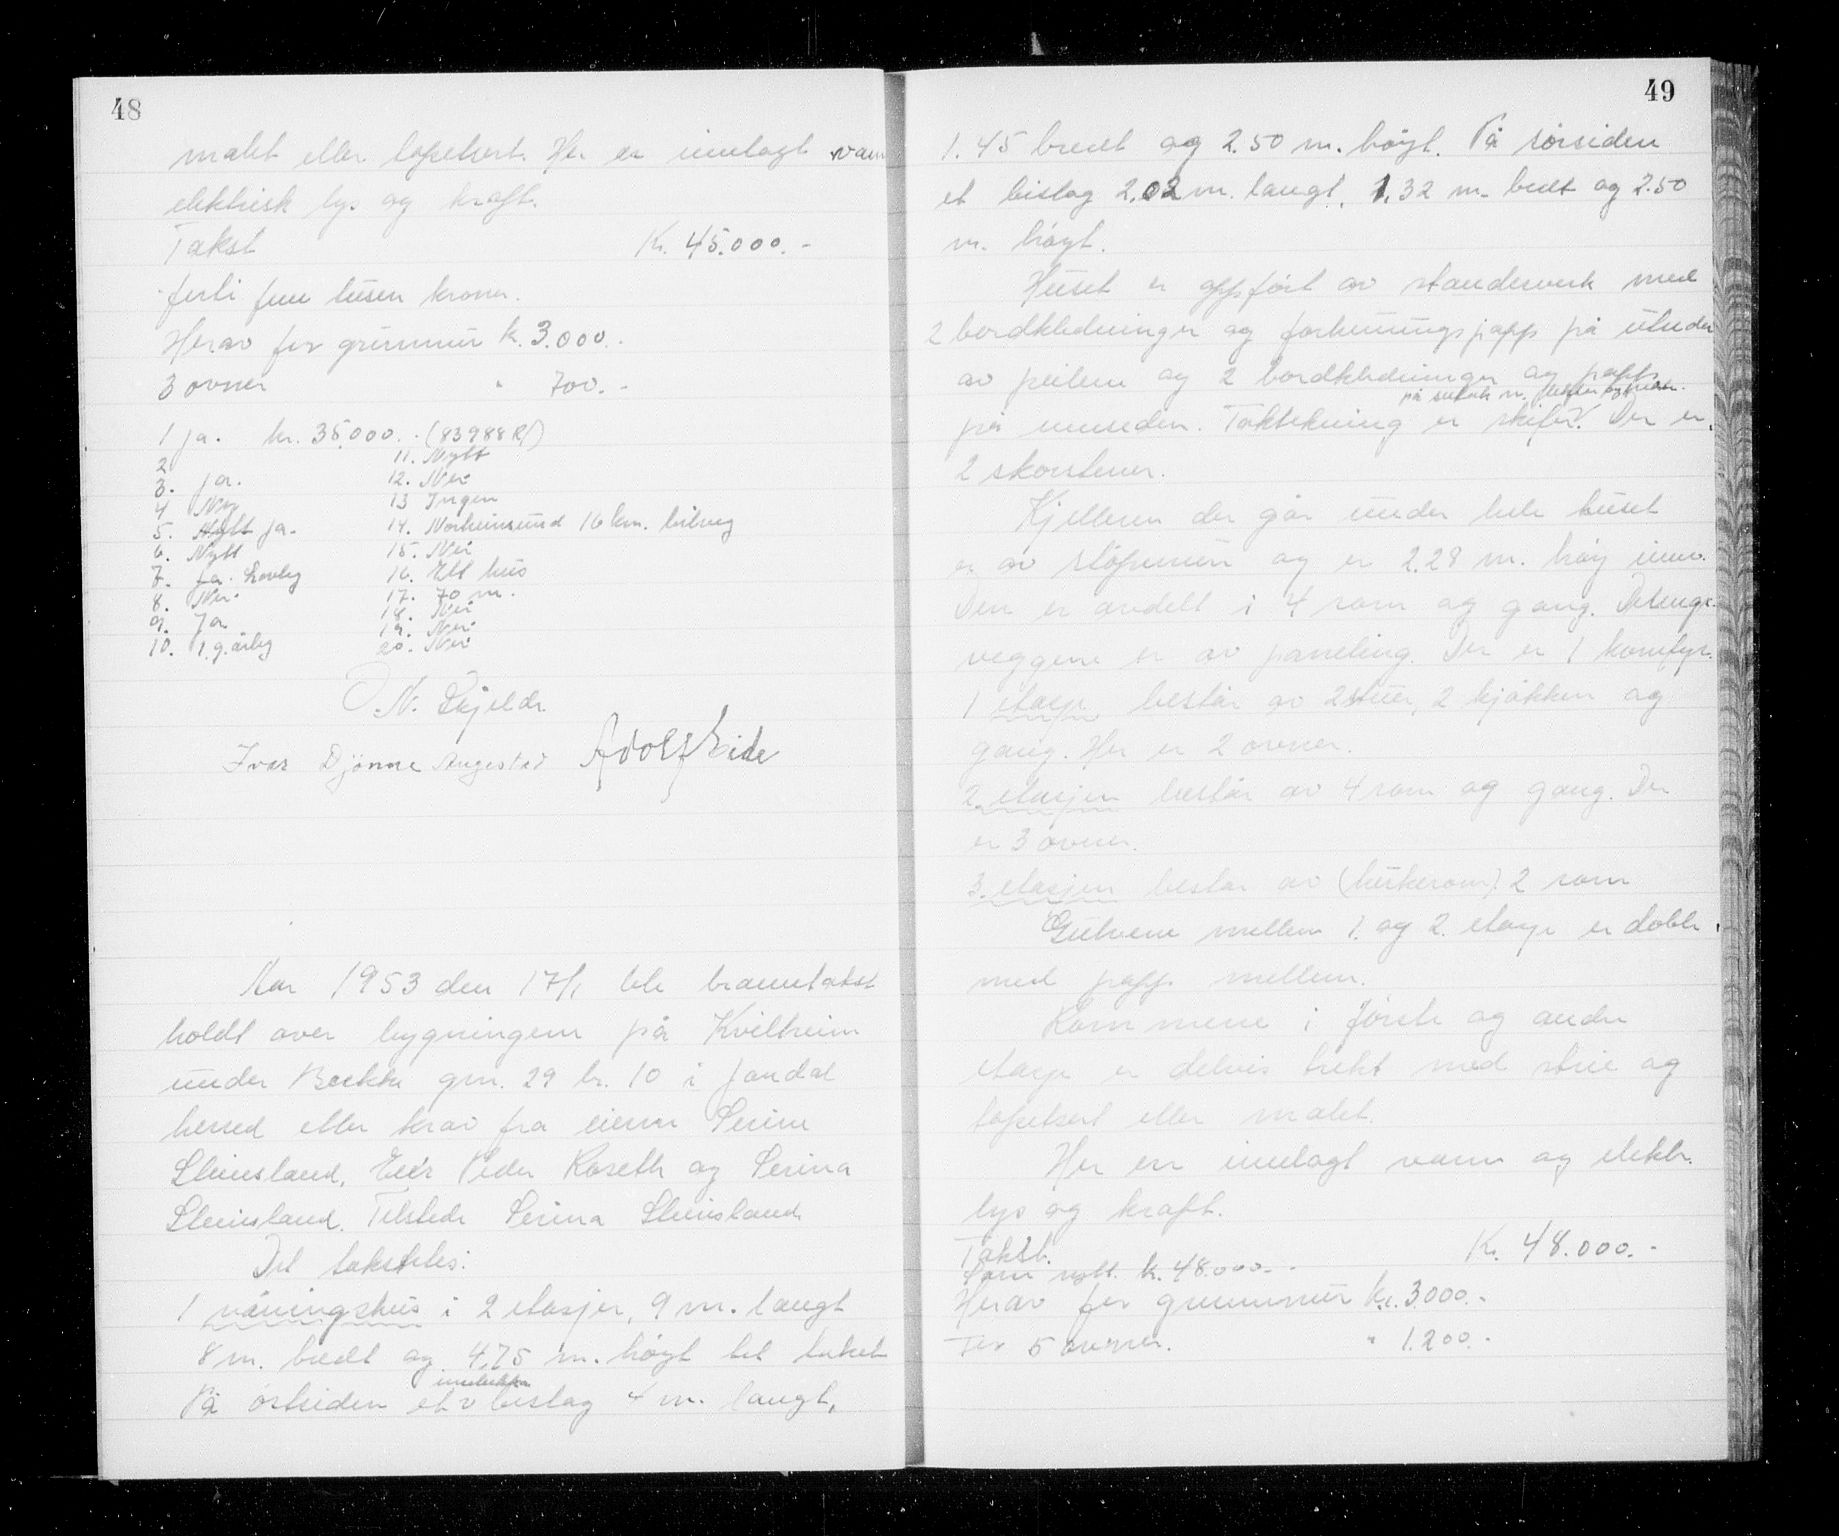 48
malt eller tapetsert. Her er innlagt vann
elektrisk lys og kraft.
Takst Kr. 45.000.-
førti fem tusen kroner.
Herav for grunnmur k. 3.000.-
3 ovner " 700.-
1 ja. kr. 35.000.- (83988 R/)
2 11. Nytt
3. ja. 12. Nei
4 Nei 13 Ingen
5. Nytt ja. 14. Norheimsund 16 km. bilveg
6. Nytt 15. Nei
7. ja. Lovleg 16. Ett hus
8. Nei 17. 70 m.
9. Ja 18. Nei
10. 1.g. årleg 19. Nei
20. Nei
N. Skjelde
Ivar Djønne Augestad Adolf Eide
Aar 1953 den 17/1 ble branntakst
holdt over bygningene på Kvilheim
under Bække gnr. 29 br. 10 i Jondal
herred etter krav fra eieren Serine
Steinsland. Eier Peder Roseth og Serina
Steinsland. Tilstede Serina Steinsland.
Det taksteles:
1 våningshus i 2 etasjer, 9 m. langt
8 m. bredt og 4.75 m. høgt til taket
innebykka
På østsiden et v bislag 4 m. langt,
49
1.45 bredt og 2.50 m. høgt. På sørsiden
et bislag 2.02 m. langt, 1.32 m. bredt og 2.50
m. høgt.
Huset er oppført av standerverk med
2 bordkledninger og forhudningspapp på utsiden
av peilene og 2 bordkledninger og papp
på sutak m. lekter og
på innsiden. Taktekning er skifer. Der er
2 skorstener.
Kjelleren der går under hele huset
er av støpemur og er 2.28 m. høg innv.
Den er avdelt i 4 rom og gang. Delings-
veggene er av paneling. Der er 1 komfyr.
1 etasje består av 2 stuer, 2 kjøkken og
gang. Her er 2 ovner.
2. etasjen består av 4 rom og gang. Der
er 3 ovner.
3. etasjen bestar av (tørkerom) 2 rom
Gulvene mellem 1. og 2. etasje er doble
med papp mellem.
Rommene i første og andre
etasje er delvis trekt med strie og
tapetsert eller malt.
Her er innlagt vann og elektr.
lys og kraft.
Takst. Kr. 48.000.-
Som nytt. k. 48.000.-
Herav for grunnmur kr. 3.000.-
For 5 ovner. " 1.200.-